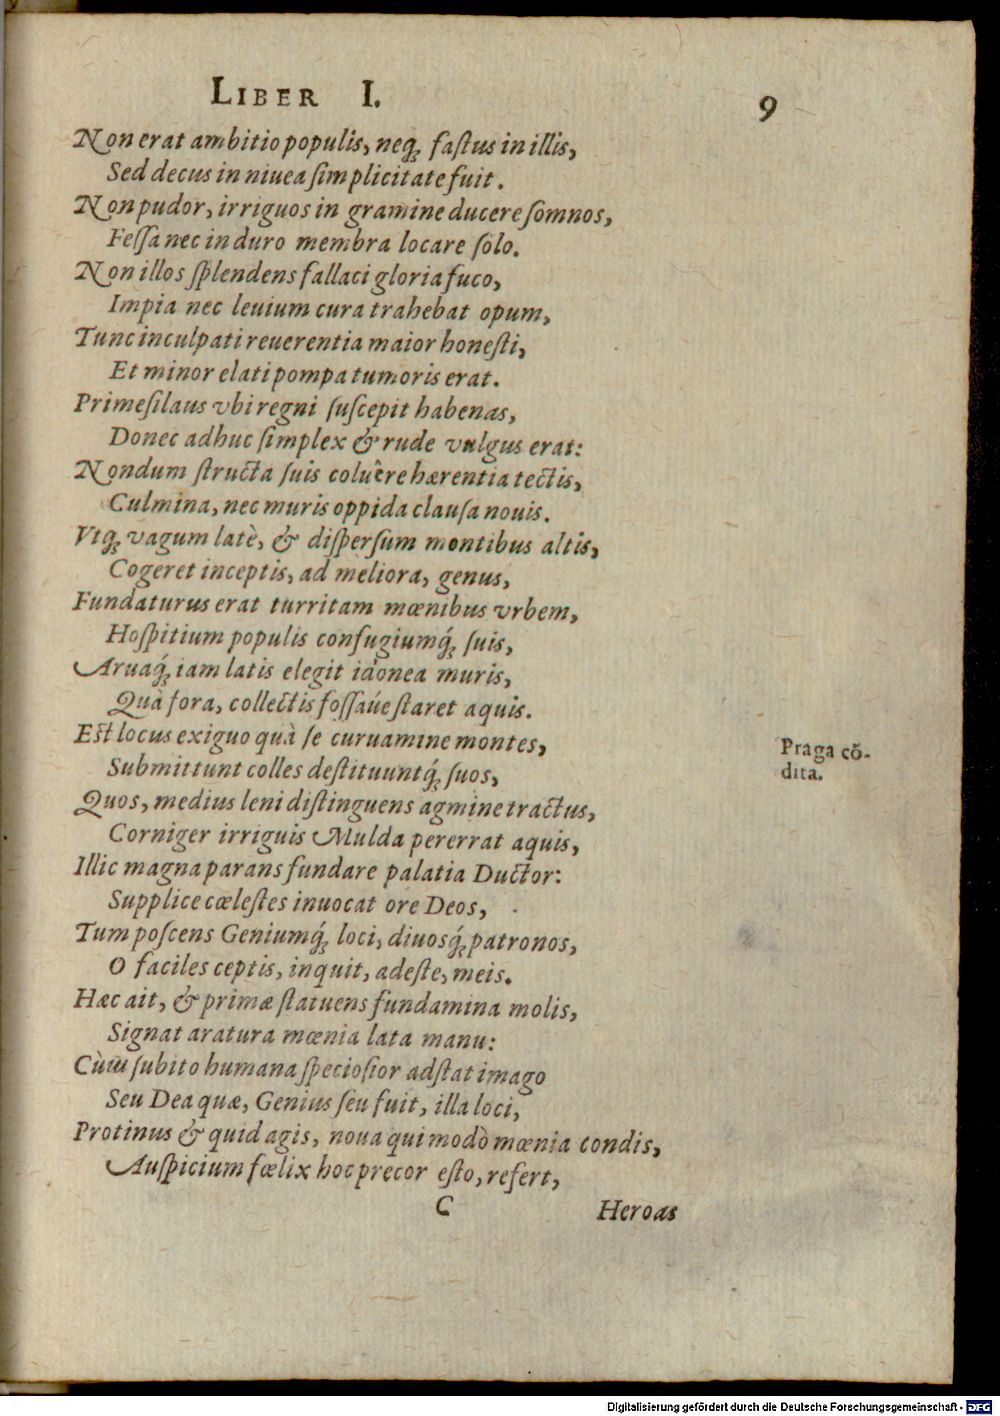 LIBER I. 9
Non erat ambitio populis, neq; faſtus in illis,
Sed decus in niuea ſimplicitate fuit.
Non pudor, irriguos in gramine ducere ſomnos,
Feſſa nec in duro membra locare ſolo.
Non illos ſplendens fallaci gloria fuco,
Impia nec leuium cura trahebat opum,
Tunc inculpati reuerentia maior honeſti,
Et minor elati pompa tumoris erat.
Primeſilaus vbi regni ſuſcepit habenas,
Donec adhuc ſimplex & rude vulgus erat:
Nondum ſtructa ſuis coluêre hærentia tectis,
Culmina, nec muris oppida clauſa nouis.
Vtq; vagum latè, & diſperſum montibus altis,
Cogeret inceptis, ad meliora, genus,
Fundaturus erat turritam mœnibus vrbem,
Hoſpitium populis confugiumq́; ſuis,
Aruaq́; iam latis elegit idonea muris,
Quà fora, collectis foſſaúe ſtaret aquis.
Eſt locus exiguo quà ſe curuamine montes,
Praga cō-
dita.
Submittunt colles deſtituuntq́; ſuos,
Quos, medius leni diſtinguens agmine tractus,
Corniger irriguis Mulda pererrat aquis,
Illic magna parans fundare palatia Ductor:
Supplice cœleſtes inuocat ore Deos,
Tum poſcens Geniumq́; loci, diuosq́; patronos,
O faciles ceptis, inquit, adeſte, meis.
Hæc ait, & primæ ſtatuens fundamina molis,
Signat aratura mœnia lata manu:
Cùm ſubito humana ſpecioſior adſtat imago
Seu Dea quæ, Genius ſeu fuit, illa loci,
Protinus & quid agis, noua qui modò mœnia condis,
Auſpicium fœlix hoc precor eſto, refert,
C Heroas
Digitalisierung gefördert durch die Deutsche Forschungsgemeinschaft - DFG